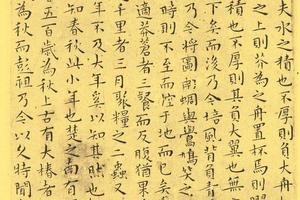 夫水之積也不厚則其負大
之上則芥為之舟置杯焉則膠
積也不厚則其負大翼也無
下矣而後乃今培風背負青
乃今將圖南蜩與鷽鳩笑之
時則不至而控於地而已矣
適莽蒼者三飡而反腹猶果
千里者三月聚糧之二蟲
年不及大年奚以知其然也
知春秋此小年也楚之南有
五百歲為秋上古有大椿者
為秋而彭祖乃今以久特聞